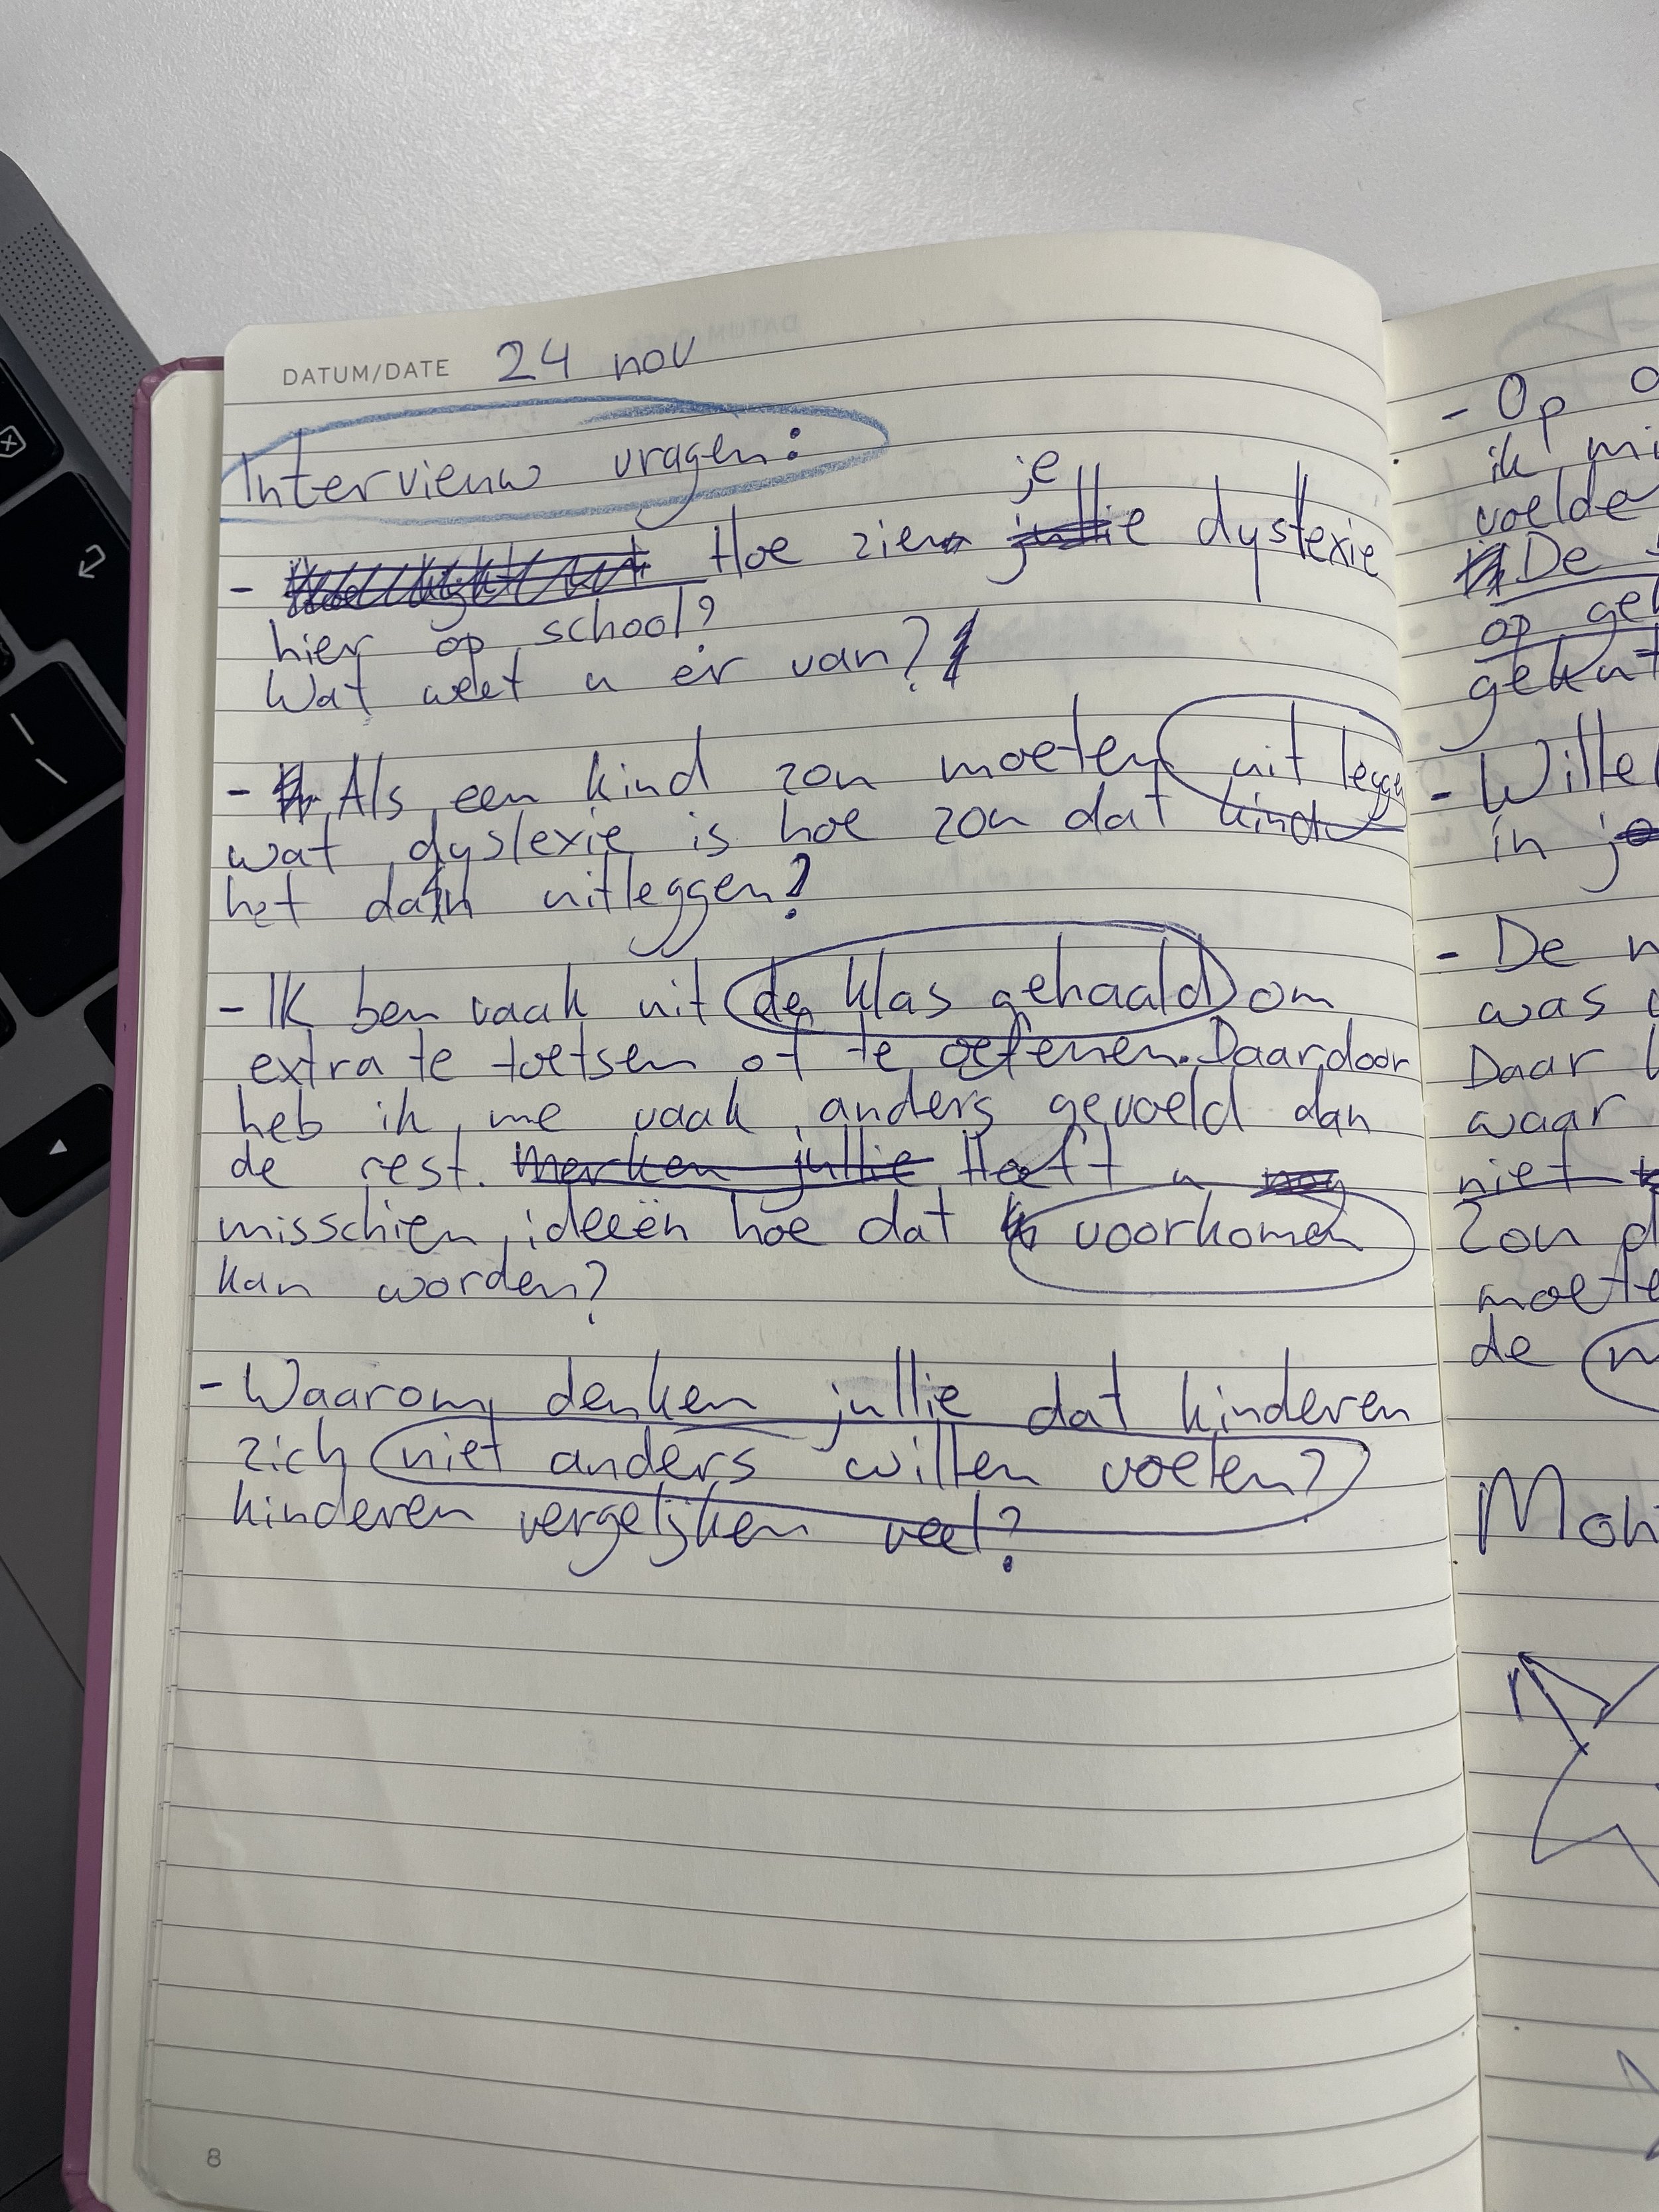 DATUM/DATE 24 nov
Intervieuw vragen:
je
- Hoe zien jullie dyslexie
hier op school?
Wat weet u er van?
- Als een kind zou moeten uit leggen
wat dyslexie is hoe zou dat kind
het dan uitleggen?
- Ik ben vaak uit de klas gehaald om
extra te toetsen of te oefenen. Daardoor
heb ik me vaak anders gevoeld dan
de rest. Merken jullie Heeft u nog
misschien ideeën hoe dat voorkomen
kan worden?
- Waarom denken jullie dat kinderen
zich niet anders willen voelen?
kinderen vergelijken veel?
8
- Op
ik
voelde
De
op
- Wille
in
- De
was
Daar
waar
niet
Zou
moete
de